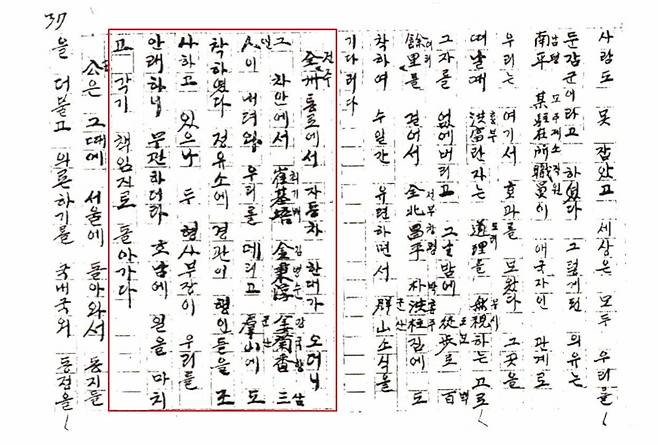 37
사람도 못 잡았고 세상은 모두 우리를
둔갑군이라고 하였다 그렇게된 의유는
南平 某駐在所職員이 애국자인 관계로
우리는 여기서 효과를 모았다 그곳을
떠날때 洪富란자는 道理를 無視하는고로
그자를 없애버리고 그날밤에 從步로 百
餘里를 걸어서 全北昌平 朴洪柱집에 도
착하여 수일간 유련하면서 群山소식을
기다리다
全州통로에서 자동차 한대가 오더니
그 차안에서 崔基培 金東淳 三
人이 우리를 데리고 群山에 도
착하였다 정유소에 경관의 행인들을 조
사하고 있으나 두 형사부장이 우리를
안래하니 무관하더라 호남에 일을 마치
고 각기 책임지로 돌아가다
公은 그때에 서울에 돌아와서 동지들
을 더불고 의론하기를 국내국외 동정을